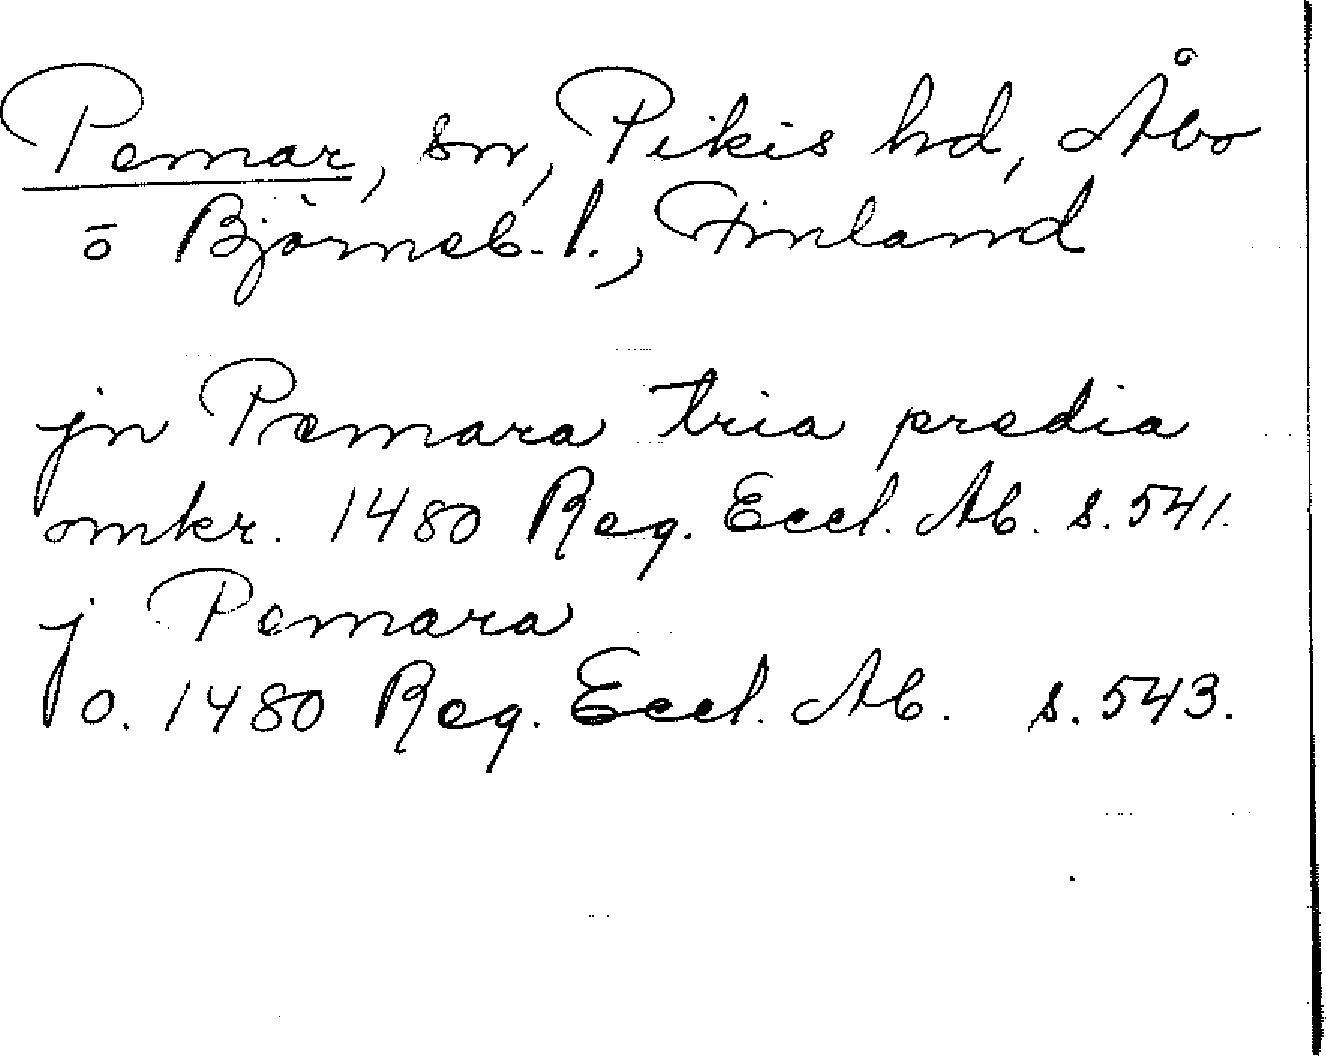 Pemar, sn, Pikis hd, Åbo
o Björneb. l., Finland
jn Pemara tria predia
omkr. 1480 Reg. Eccl. Ab. s. 541.
j Pemara
o. 1480 Reg. Eccl. Ab. s. 543.